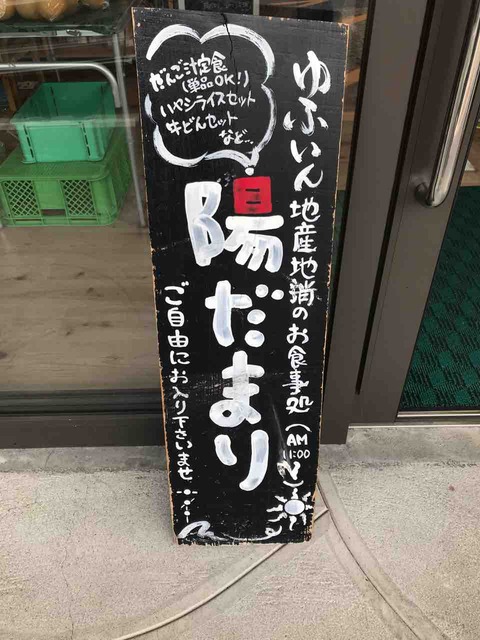 ゆふいん地産地消のお食事処(AM11:00〜)
だんご汁定食
(単品OK!)
ハヤシライスセット
牛どんセット
など…
陽だまり
ご自由にお入り下さいませ